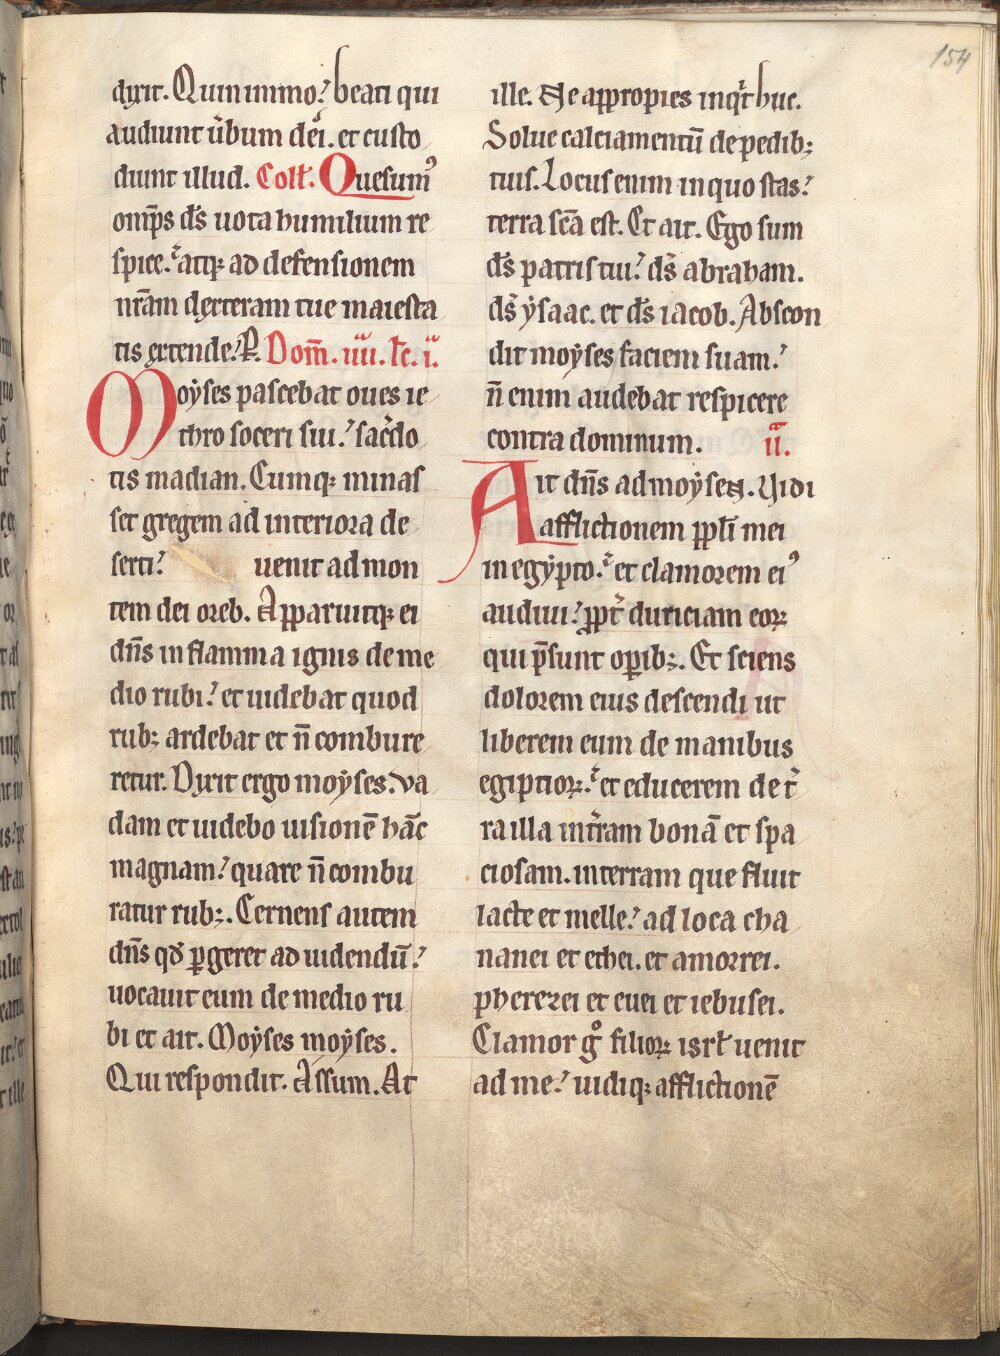 154
dixit. Quin immo? beati qui
audiunt ůbum dei. et custo
diunt illud. Coll̄. Quesumꝰ
om̄ps d̄s uota humilium re
spice. atqꝫ ad defensionem
nr̄am dexteram tue maiesta
tis extende. P. Dom̄. iiii. lc̄. i.
Moẏses pascebat oues ie
thro soceri sui. sac̄do
tis madian. Cumqꝫ minas
set gregem ad interiora de
serti. uenit ad mon
tem dei oreb. Apparuitqꝫ ei
dn̄s in flamma ignis de me
dio rubi. et uidebat quod
rubꝫ ardebat et n̄ combure
retur. Dixit ergo moẏses. va
dam et uidebo uisionē hāc
magnam. quare n̄ combu
ratur rubꝫ. Cernens autem
dn̄s qđ ꝑgeret ad uidendū.
uocauit eum de medio ru
bi et ait. Moẏses moẏses.
Qui respondit. Assum. At
ille. Ne appropies inq̇t huc.
Solue calciamentū de pedibꝫ
tuis. Locus enim in quo stas.
terra sc̄a est. Et ait. Ego sum
d̄s patris tui. d̄s abraham.
d̄s ẏsaac. et d̄s iacob. Abscon
dit moẏses faciem suam.
n̄ enim audebat respicere
contra dominum. ii.
Ait dn̄s ad moẏsen. Vidi
afflictionem ppl̄i mei
in egẏpto. et clamorem eiꝰ
audiui. ꝓpt̄ duriciam eoꝝ
qui p̄sunt oꝑibꝫ. Et sciens
dolorem eius descendi ut
liberem eum de manibus
egiptioꝝ. et educerem de t̄
ra illa in t̄ram bonā et spa
ciosam. in terram que fluit
lacte et melle. ad loca cha
nanei et ethei. et amorrei.
pherezei et euei et iebusei.
Clamor gͦ filioꝝ isrl̄ uenit
ad me. uidiqꝫ afflictionē